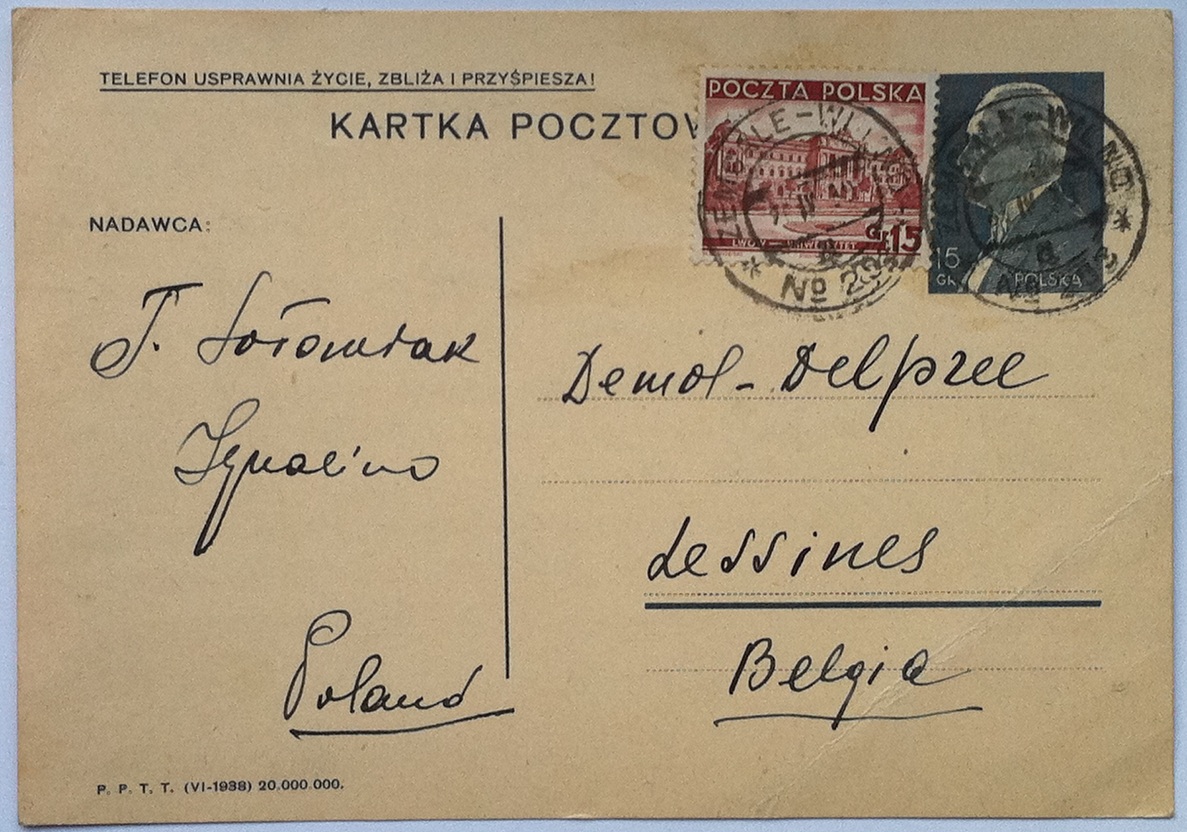 TELEFON USPRAWNIA ŻYCIE, ZBLIŻA I PRZYŚPIESZA!
KARTKA POCZTOW
POCZTA POLSKA
GR. 15
LWÓW - UNIWERSYTET
15
GR.
POLSKA
ZEMGALE-WILNO
No 293
ZEMGALE-WILNO
No 293
NADAWCA:
J. Sołomiak
Ignalino
Poland
Demol - Delpree
Lessines
Belgia
P. P. T. T. (VI-1938) 20.000.000.